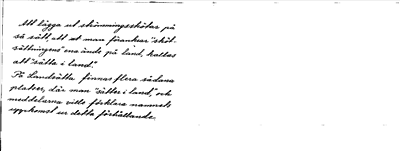 Att lägga ut strömmingsskötar på
så sätt, att man förankrar "sköt-
sättningens" ena ände på land, kallas
att "sätta i land."
På Landsätta finnas flera sådana
platser, där man "sätter i land," och
meddelarna ville förklara namnets
uppkomst ur detta förhållande.